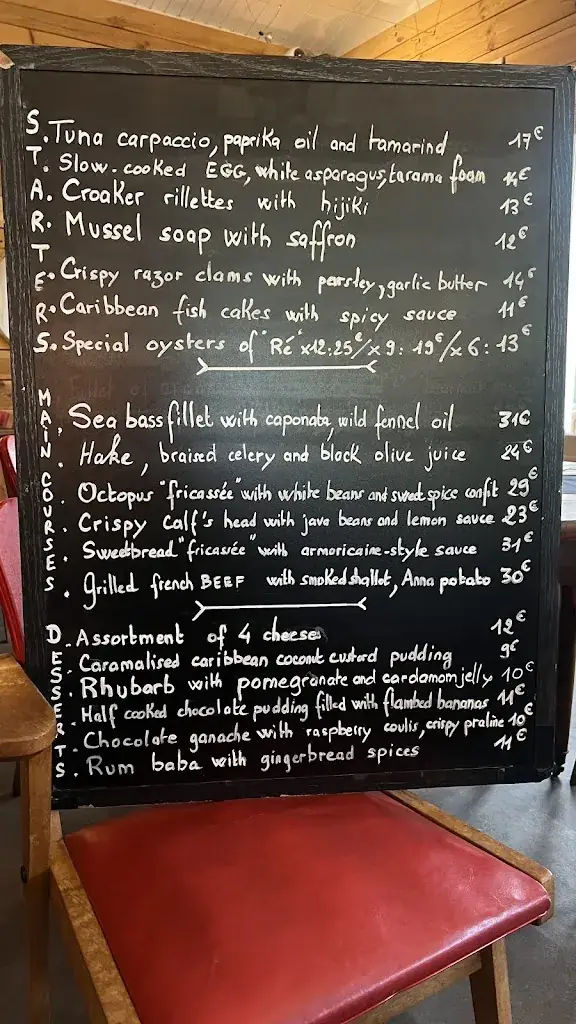 STARTERS
. Tuna carpaccio, paprika oil and tamarind 17€
. Slow-cooked EGG, white asparagus, tarama foam 14€
. Croaker rillettes with hijiki 13€
. Mussel soap with saffron 12€
. Crispy razor clams with parsley, garlic butter 14€
. Caribbean fish cakes with spicy sauce 11€
. Special oysters of "Ré" x12: 25€/x9: 19€/x6: 13€
MAIN COURSES
. Sea bass fillet with caponata, wild fennel oil 31€
. Hake, braised celery and black olive juice 24€
. Octopus "fricassée" with white beans and sweet spice confit 29€
. Crispy Calf's head with java beans and lemon sauce 23€
. Sweetbread "fricasée" with armoricaine-style sauce 31€
. Grilled french BEEF with smoked shallot, Anna potato 30€
DESSERTS
. Assortment of 4 cheeses 12€
. Caramalised caribbean coconut custard pudding 9€
. Rhubarb with pomegranate and cardamom jelly 10€
. Half cooked chocolate pudding filled with flambed bananas 11€
. Chocolate ganache with raspberry coulis, crispy praline 10€
. Rum baba with gingerbread spices 11€